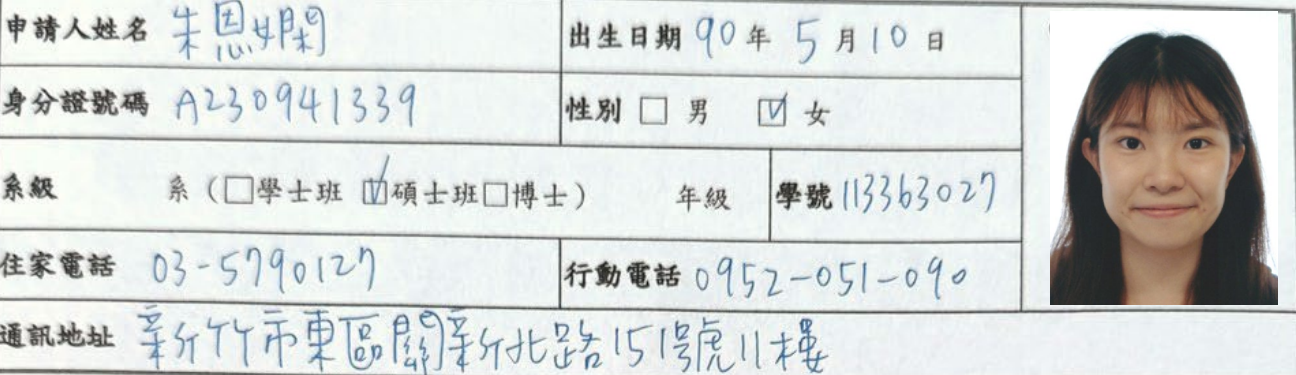 申請人姓名 朱恩嫻 出生日期 90 年 5 月 10 日
身分證號碼 A230941339 性別 □ 男 ☑ 女
系級 系（□學士班 ☑碩士班□博士） 年級 學號 113363027
住家電話 03-5790127 行動電話 0952-051-090
通訊地址 新竹市東區關新北路151號11樓